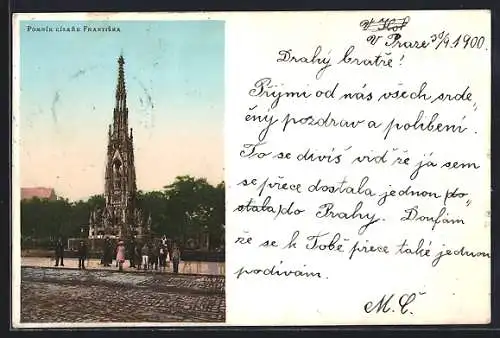 Pomník císaře Františka
V Praze 30/9. 1900.
Drahý bratře!
Přijmi od nás všech srde„
čný pozdrav a políbení.
To se divíš viď že já sem
se přece dostala jednou (do
stala) do Prahy. Doufám
že se k Tobě přece také jednou
podívám.
M. Č.